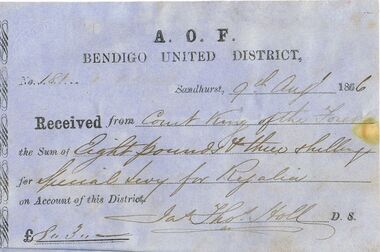 A. O. F.
BENDIGO UNITED DISTRICT,
No.
Sandhurst, 9th Augt 1866
Received from Court King of the Forest
the Sum of Eight pounds & three shillings
for Special levy for Regalia
on Account of this District.
Jas Thos Holl D. S.
£8..3..